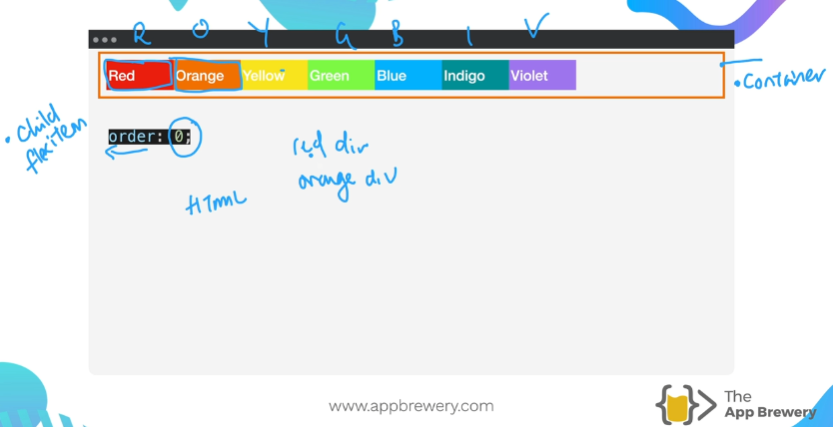 R O Y G B I V
Red Orange Yellow Green Blue Indigo Violet
• Container
• Child
flexitem
order: 0;
red div
orange div
HTML
www.appbrewery.com
The
App Brewery